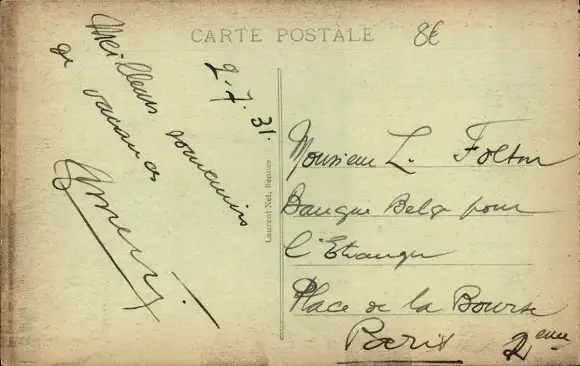 CARTE POSTALE
8€
2.7.31.
Meilleurs souvenirs
de vacances
Laurent-Nel, Rennes
Monsieur L.
Banque Belge pour
l'Etranger
Place de la Bourse
Paris 2eme